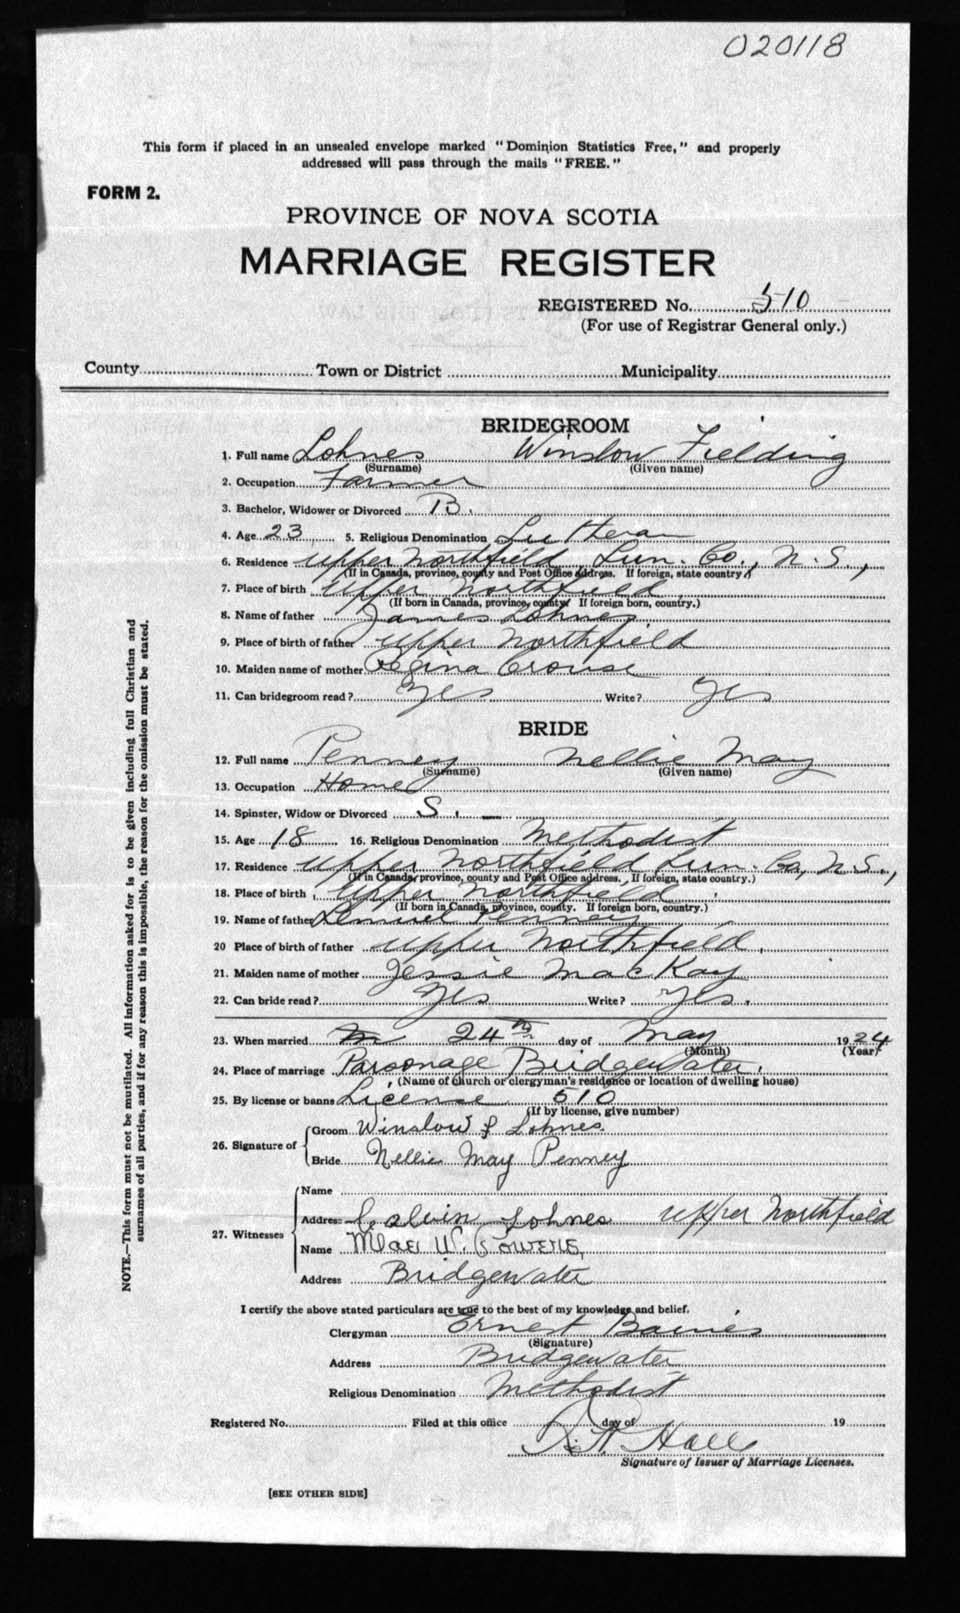 020118
This form if placed in an unsealed envelope marked "Dominion Statistics Free," and properly
addressed will pass through the mails "FREE."
FORM 2.
PROVINCE OF NOVA SCOTIA
MARRIAGE REGISTER
REGISTERED No. 510
(For use of Registrar General only.)
County Town or District Municipality
BRIDEGROOM
1. Full name Lohnes Winslow Fielding
(Surname) (Given name)
2. Occupation Farmer
3. Bachelor, Widower or Divorced B.
4. Age 23 5. Religious Denomination Lutheran
6. Residence Upper Northfield Lun. Co., N.S.,
(If in Canada, province, county and Post Office address. If foreign, state country.)
7. Place of birth Upper Northfield
(If born in Canada, province, county. If foreign born, country.)
8. Name of father James Lohnes
9. Place of birth of father Upper Northfield
10. Maiden name of mother Regina Crouse
11. Can bridegroom read? Yes Write? Yes
BRIDE
12. Full name Penney Nellie May
(Surname) (Given name)
13. Occupation Home
14. Spinster, Widow or Divorced S. –
15. Age 18 16. Religious Denomination Methodist
17. Residence Upper Northfield Lun. Co, N.S.,
(If in Canada, province, county and Post Office address. If foreign, state country.)
18. Place of birth Upper Northfield.
(If born in Canada, province, county. If foreign born, country.)
19. Name of father Lemuel Penney
20 Place of birth of father Upper Northfield.
21. Maiden name of mother Jessie MacKay
22. Can bride read? Yes Write? Yes.
23. When married 24th day of May 1924
(Month) (Year)
24. Place of marriage Parsonage Bridgewater.
(Name of church or clergyman's residence or location of dwelling house)
25. By license or banns License 510
(If by license, give number)
26. Signature of Groom Winslow F Lohnes.
Bride Nellie May Penney
27. Witnesses
Name
Address Calvin Lohnes Upper Northfield
Name Mae W. Powers,
Address Bridgewater
I certify the above stated particulars are true to the best of my knowledge and belief.
Clergyman Ernest Baines
(Signature)
Address Bridgewater
Religious Denomination Methodist
Registered No. Filed at this office day of 19
Hall
Signature of Issuer of Marriage Licenses.
[SEE OTHER SIDE]
NOTE.—This form must not be mutilated. All information asked for is to be given including full Christian and
surnames of all parties, and if for any reason this is impossible, the reason for the omission must be stated.